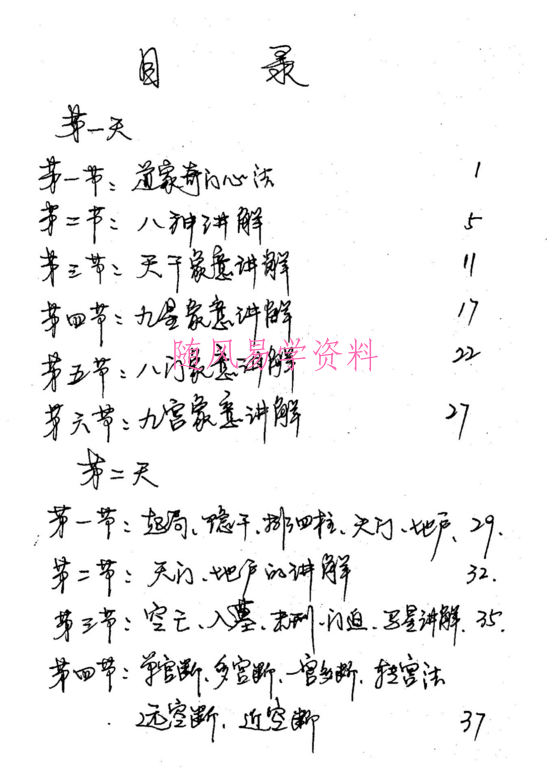 目 录
第一天
第一节：道家奇门心法 1
第二节：八神讲解 5
第三节：天干象意讲解 11
第四节：九星象意讲解 17
随风易学资料
第五节：八门象意讲解 22
第六节：九宫象意讲解 27
第二天
第一节：起局、隐干、排四柱、天门、地户、29.
第二节：天门、地户的讲解 32.
第三节：空亡、入墓、击刑、门迫、马星讲解.35.
第四节：单宫断、多宫断、一宫多断、转宫法
远空断、近空断 37